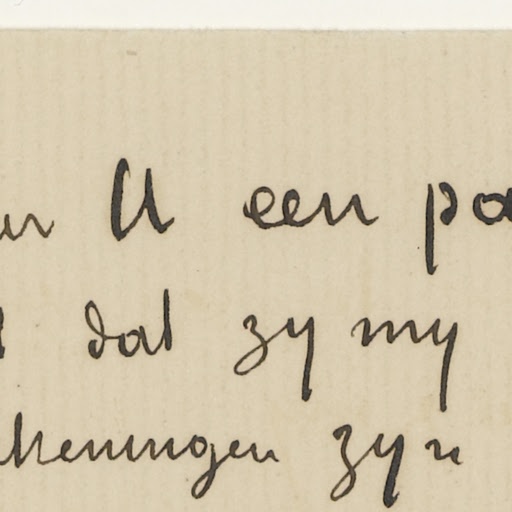 U een pa
dat zy my
keningen zyn